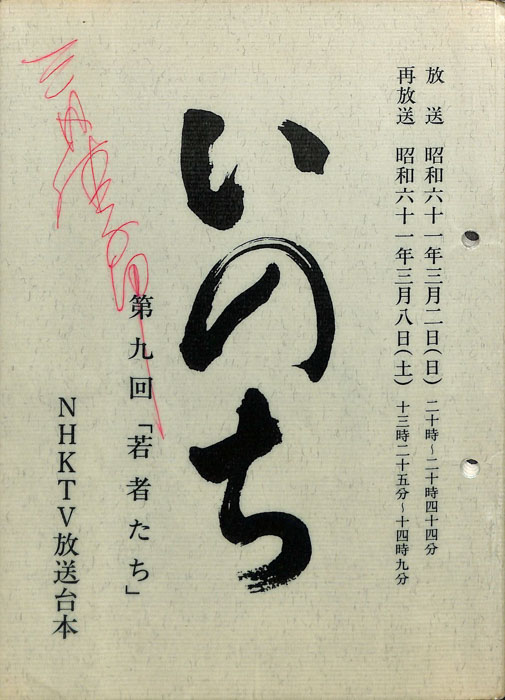 放送 昭和六十一年三月二日(日) 二十時~二十時四十四分
再放送 昭和六十一年三月八日(土) 十三時二十五分~十四時九分
いのち
第九回「若者たち」
NHKTV放送台本